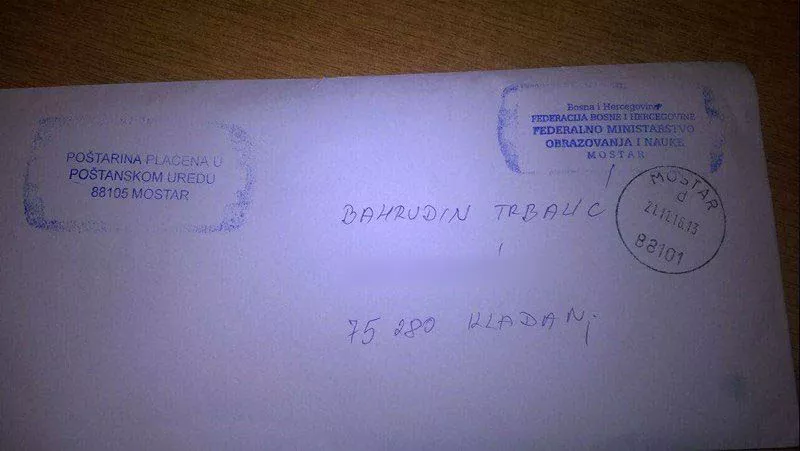 POŠTARINA PLAĆENA U
POŠTANSKOM UREDU
88105 MOSTAR
Bosna i Hercegovina
FEDERACIJA BOSNE I HERCEGOVINE
FEDERALNO MINISTARSTVO
OBRAZOVANJA I NAUKE
MOSTAR
MOSTAR
d
21.11.16.13
88101
BAHRUDIN TRBALIC
75 280 KLADANJ